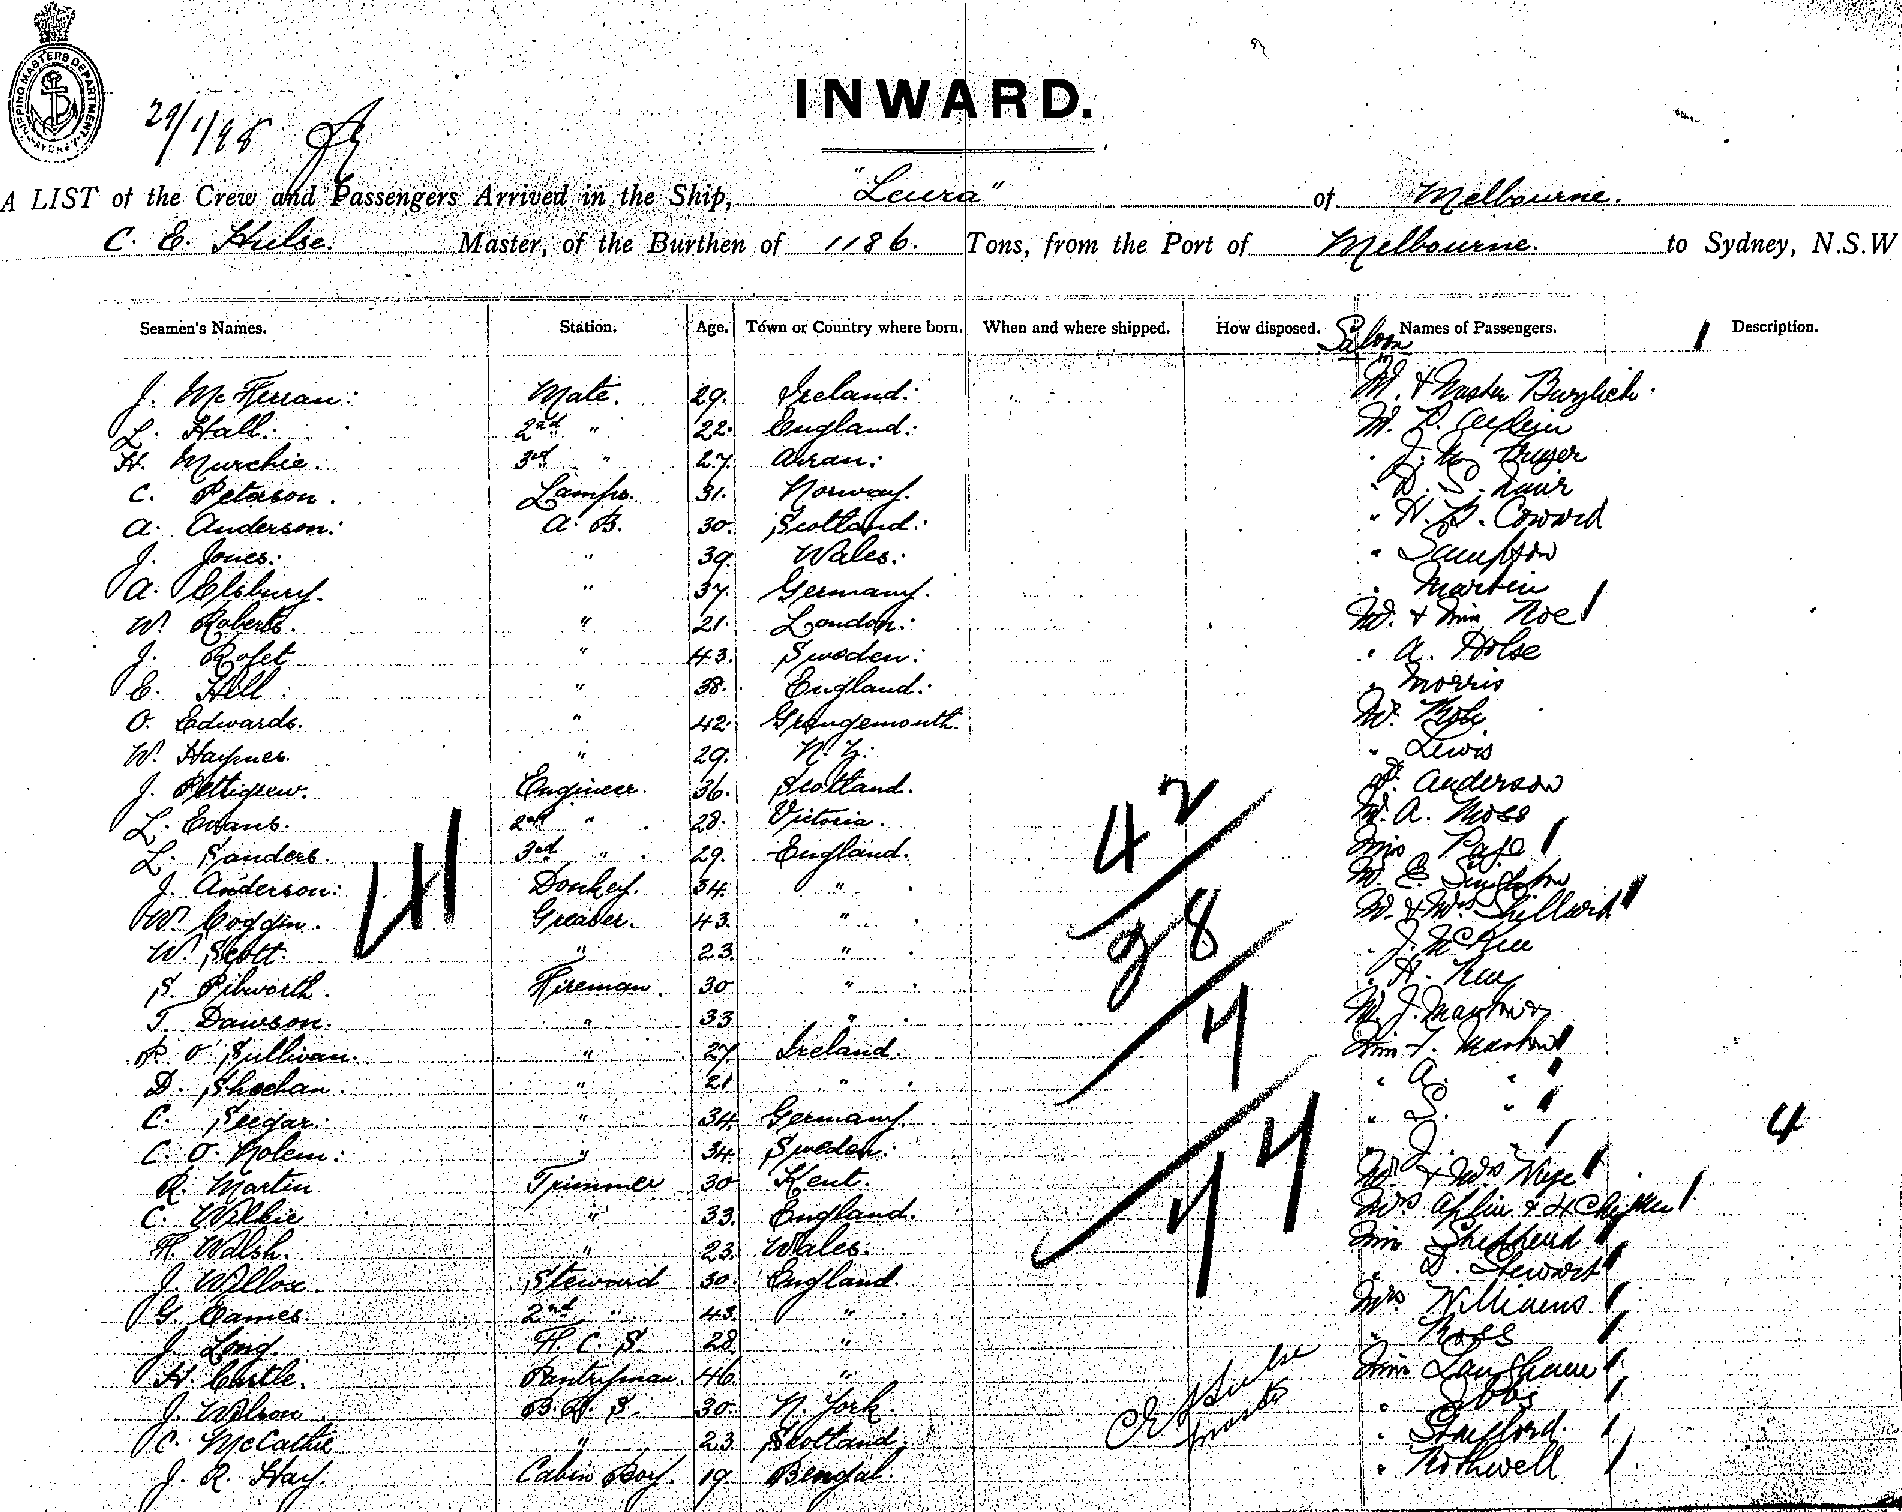 SHIPPING MASTERS DEPARTMENT SYDNEY
29/1/98
INWARD.
A LIST of the Crew and Passengers Arrived in the Ship, "Leura" of Melbourne.
C. E. Hulse. Master, of the Burthen of 1186. Tons, from the Port of Melbourne. to Sydney, N.S.W
Seamen's Names. Station. Age. Town or Country where born. When and where shipped. How disposed. Names of Passengers. Description.
Saloon
J. McFerran: Mate. 29. Ireland: M. & Master
L. Hall: 2nd " 22. England:
H. Murchie. 3rd " 27. Arran:
C. Peterson. Lamps. 31. Norway.
A. Anderson: A. B. 30. Scotland: " H. B. Coward
J. Jones: " 39. Wales: " Sampson
A. Elsbury. " 37. Germany. " Martin
W. Roberts. " 21. London: Mr. & Miss Noe
J. Rofet " 43. Sweden: " A. Holse
E. Hill: " 38. England: " Morris
O. Edwards. " 42. Grangemouth. Mr.
W. Haymes. " 29. N. Z. " Lewis
J. Pettigrew. Engineer. 36. Scotland. Anderson
L. Evans. 2nd " 28. Victoria. Mr. A. Moss
L. Sanders. 3rd " 29. England. Miss Page
J. Anderson: Donkey. 34. " Mr. E. Singleton
W. Coggin. Greaser. 43. " Mr. & Mrs
W. Scott. " 23. " " J. McGee
S. Pibworth. Fireman. 30 " " H.
T. Dawson. " 33 " Mr J.
P. O'Sullivan. " 27. Ireland. Miss
D. Sheehan. " 21 " " A. "
C. Seegar. " 34. Germany. " L. "
C. O. Nolem: " 34. Sweden. " J. "
R. Martin Trimmer 30 Kent. Mr & Mrs
C. Wilkie " 33. England. Mrs Aplin & 4 Children
H. Walsh. " 23. Wales. Miss Shepherd
J. Willox. Steward 30. England. " D. Stewart
G. Eames 2nd " 43. " Mrs Williams
J. Long F. C. S. 28. " " Ross
H. Castle. Pantryman. 46. " Miss Langhorne
J. Wilson B. R. S. 30. N. York "
C. McCathie " 23. Scotland, " Stafford.
J. R. Hay. Cabin Boy. 19. Bengal. " Rothwell
42
38
4
44
4
C E Hulse
Master